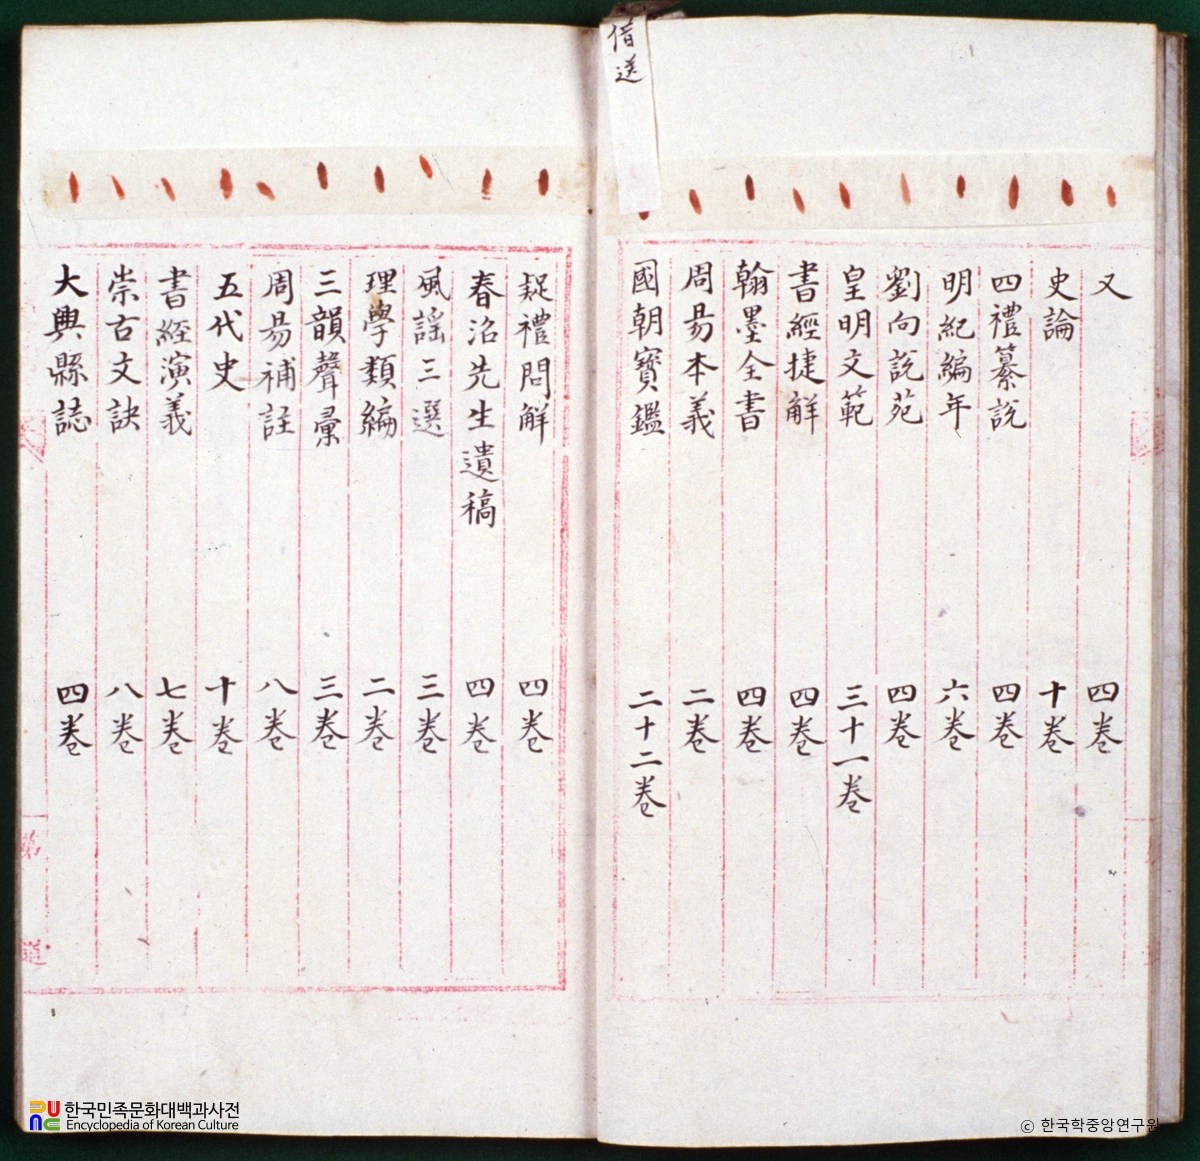 借送
又 四卷
史論 十卷
四禮纂說 四卷
明紀編年 六卷
劉向說苑 四卷
皇明文範 三十一卷
書經捷解 四卷
翰墨全書 四卷
周易本義 二卷
國朝寶鑑 二十二卷
疑禮問解 四卷
春沼先生遺稿 四卷
風謠三選 三卷
理學類編 二卷
三韻聲彙 三卷
周易補註 八卷
五代史 十卷
書經演義 七卷
崇古文訣 八卷
大興縣誌 四卷
한국민족문화대백과사전
Encyclopedia of Korean Culture
© 한국학중앙연구원